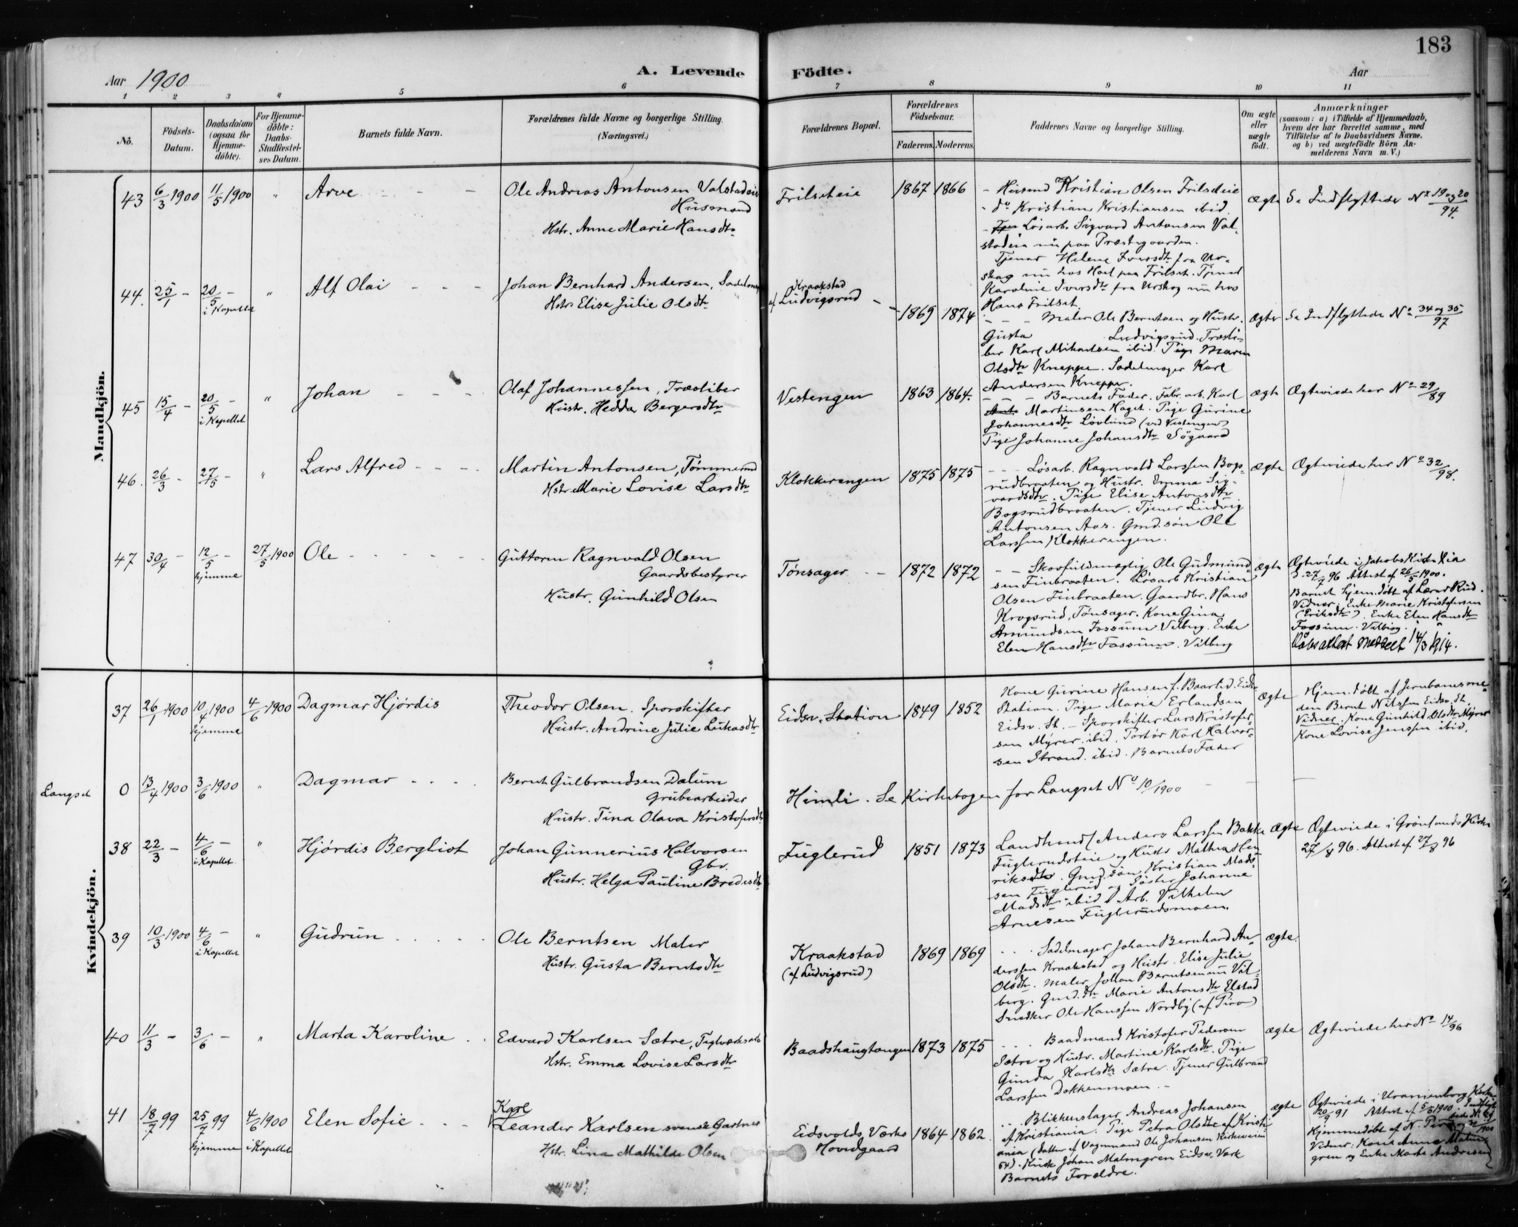 183
Aar 1900
A. Levende Födte.
Aar
1 2 3 4 5 6 7 8 9 10 11
No.
Födsels-
Datum.
Daabsdatum
(ogsaa for
Hjemme-
döbte).
For Hjemme-
döbte:
Daabs-
Stadfæstel-
ses Datum.
Barnets fulde Navn.
Forældrenes fulde Navne og borgerlige Stilling.
(Næringsvei.)
Forældrenes Bopæl.
Forældrenes
Födselsaar.
Faderens. Moderens.
Faddernes Navne og borgerlige Stilling.
Om ægte
eller
uægte
födt.
Anmærkninger
(saasom: a) i Tilfælde af Hjemmedaab,
hvem der har forrettet samme, med
Tilföielse af to Daabsvidners Navne,
og b) ved uægtefödte Börn An-
melderens Navn m. V.)
Mandkjön.
43 6/3 1900 11/5 1900 " Arve
Ole Andreas Antonsen Valstadeie
Husmand
Hstr. Anne Marie Hansdtr
Frilseteie 1867 1866
Husmand Kristian Olsen Frilseteie
do Kristian Kristiansen ibid.
Løsarb. Sigvard Antonsen Val-
stadeie nu paa Præstegaarden.
Tjener Helene Iversdtr fra Ur-
skog nu hos Karl paa Frilset. Tjener
Karoline Iversdtr fra Urskog nu hos
Hans Frilset
ægte Se Indflyttede No 19 og 20/94.
44. 25/1 - 20/5 - i Kapellet " Alf Olai
Johan Bernhard Andersen, Sadelmager
Hstr. Elise Julie Olsdtr
Kraakstad
af Ludvigsrud 1869 1874
Maler Ole Berntsen og Hustr.
Gusta Ludvigsrud. Træsli-
ber Karl Mikaelsen ibid. Pige Maren
Olsdtr Kneppe. Sadelmager Karl
Andersen Kneppe.
ægte Se Indflyttede No 34 og 35/97
45 15/4 - 20/5 - i Kapellet " Johan
Olaf Johannessen, Træsliber
Hustr. Hedda Bergersdtr
Vestengen 1863 1864.
Barnets Fader. Fabr.arb. Karl
Martinsen Haget. Pige Gurine
Johannesdtr Lövlund (ved Vestengen)
Pige Johanne Johansdtr Sögaard
ægte Ægteviede her No 29/89
46. 26/3 - 27/5 - " Lars Alfred
Martin Antonsen, Tømmermd
Hstr. Marie Lovise Larsdtr
Klokkerengen 1875 1875
Løsarb. Ragnvald Larsen Bogs-
rudbraaten og Hustr. Emma Sig-
vardsdtr. Pige Elise Antonsdtr
Bogsrudbraaten. Tjener Ludvig
Antonsen Aas. Gmd.søn Ole
Larssen Klokkerengen.
ægte Ægteviede her No 32/98.
47 30/4 - 12/5 - hjemme 27/5 1900 Ole
Guttorm Ragnvald Olsen
Gaardsbestyrer
Hustr. Gunhild Olsen
Tønsager 1872 1872
Skovfuldmægtig Ole Gudmund-
sen Finbraaten. Løsarb. Kristian
Olsen Finbraaten. Gaardbr. Hans
Krogsrud, Tønsager. Kone Gina
Amundsen Fossum Vilberg. Enke
Elen Hansdtr Fossum. Vilberg
ægte Ægteviede i Jakobs Kirke Kria
Attest af 26/5 1900.
Barnet hjem.døbt af Lærer Rud.
Vidner: Enke Marie Kristofersen
(Eriksdtr). Enke Elen Hansdtr
Fossum. Vilberg.
Daabsattest meddelt 14/3 1914.
Kvindekjön.
37 26/1 1900 10/4 1900 hjemme 4/6 1900 Dagmar Hjórdis
Theodor Olsen. Sporskifter
Hustr. Andrine Julie Lukasdtr
Eidsv. Station 1849 1852
Kone Gurine Hansen f. Baarlid. Eidsv.
Station. Pige Marie Erlandsen
Eidsv. St. - Sporskifter Lars Kristofer-
sen Myrer. ibid. Portør Karl Halvor-
sen Strand. ibid. Barnets Fader
ægte Hjem.døbt af Jernbanemd
den Bernt Nilssen Eidsv. St.
Vidner: Kone Gunhild Olsdtr Myrer
Kone Lovise Jensen ibid.
Langset 0 13/4 1900 3/6 1900 " Dagmar
Bernt Gulbrandsen Dalum
Grubearbeider
Hustr. Tina Olava Kristofersdtr
Himli. Se Kirkebogen for Langset No 10/1900
38 22/3 - 4/6 - i Kapellet " Hjórdis Bergliot
Johan Gunnerius Halvorsen
Gbr.
Hustr. Helga Pauline Bredesdtr
Fuglerud 1851 1873
Landhand. Anders Larssen Bakke
Fuglerudseie og Hustr. Mathea Hen-
riksdtr. Gmd.søn Kristian Mads-
sen Fuglerud og Søster Johanne
Madsdtr ibid. Arb. Vilhelm
Arnesen Fuglerudsmoen.
ægte Ægteviede i Grønlands Kirke
27/8 96. Attest af 27/8 96
39 10/3 1900 4/6 - i Kapellet " Gudrun
Ole Berntsen Maler
Hustr. Gusta Berntsdtr
Kraakstad
(af Ludvigsrud) 1869 1869
Sadelmager Johan Bernhard An-
dersen Kraakstad og Hustr. Elise Julie
Olsdtr. Maler Johan Berntsen nu Vil-
berg. Gmd.dtr Marie Antonsdtr Elstad
Snedker Ole Hanssen Nordby (af Piro)
ægte.
40 11/3 - 3/6 - " Marta Karoline
Edvard Karlsen Sætre, Teglværksarb
Hstr. Emma Lovise Larsdtr
Baadshaugtangen 1873 1875
Baadsmand Kristofer Pedersen
Sætre og Hustr. Martine Karlsdtr. Pige
Gunda Karlsdtr Sætre. Tjener Gulbrand
Larssen Dokkenmoen.
ægte Ægteviede her No 14/96
41 18/7 99 25/7 99 hjemme 4/6 1900 i Kapellet Elen Sofie
Karl
Leander Karlsen svensk Gartner
Hstr. Lina Mathilde Olsen
Eidsvolds Værks
Hovedgaard 1864 1862.
Blikkenslager Andreas Johansen
af Kristiania. Pige Petra Olsdtr af Kristi-
ania (datter af Vognmand Ole Johansen
Johan Malmgren Eidsv. Værk
Barnets Forældre.
ægte Ægteviede i Uranienborg Kirke
20/9 91 Attest af 1900.
Hjemmedøbt af
Vidner: Kone Anna Malm-
gren og Enke Marte Andresen